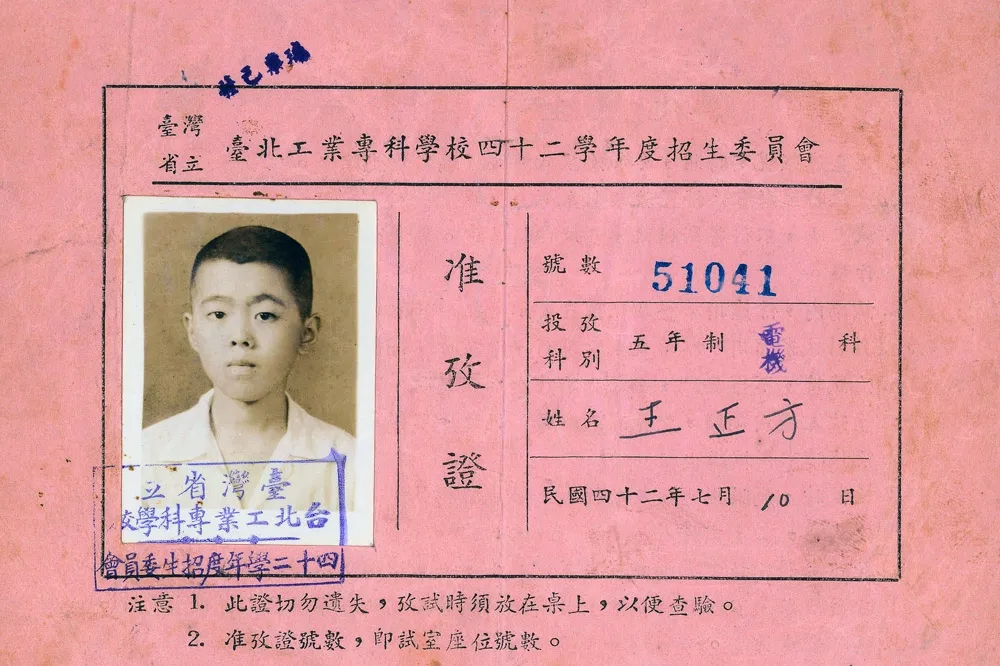 臺灣省立 臺北工業專科學校四十二學年度招生委員會
准攷證
號數 51041
投攷科別 五年制 電機 科
姓名 王正方
民國四十二年七月 10 日
臺灣省立
台北工業專科學校
四十二學年度招生委員會
注意 1. 此證切勿遺失，攷試時須放在桌上，以便查驗。
2. 准攷證號數，即試室座位號數。